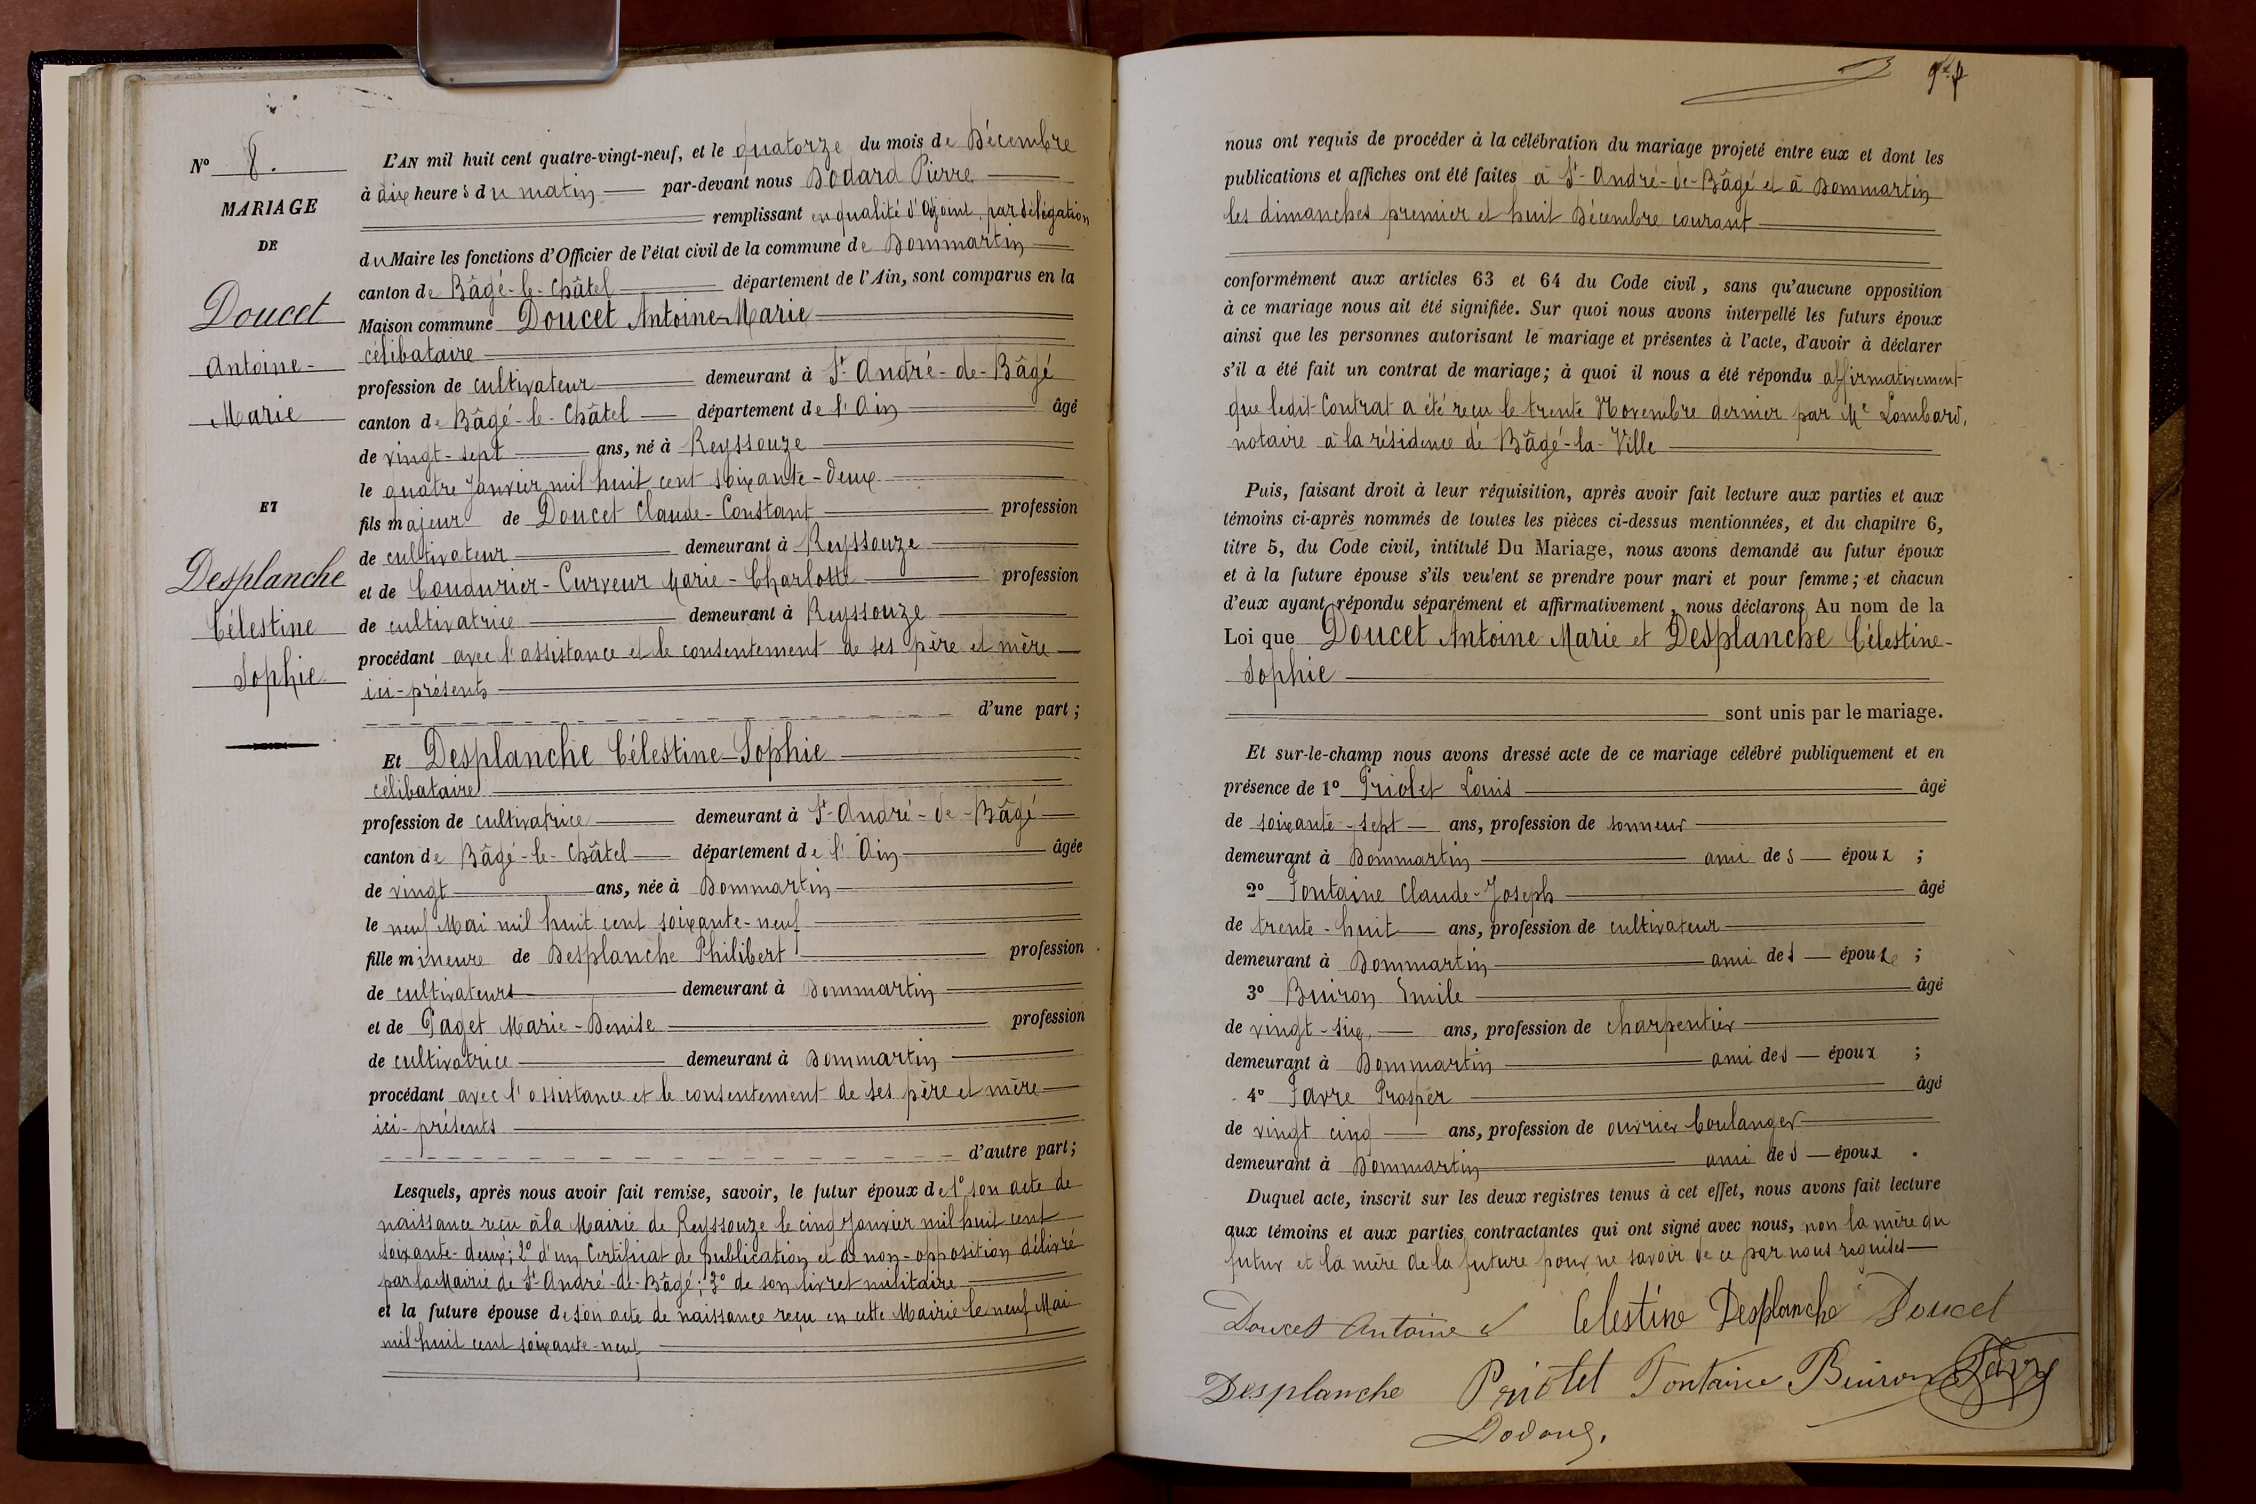 N° 8.
MARIAGE
DE
Doucet
Antoine-
Marie
ET
Desplanche
Célestine
Sophie
L'AN mil huit cent quatre-vingt-neuf, et le quatorze du mois de Décembre
à dix heures du matin par-devant nous Dodard Pierre
remplissant en qualité d'Adjoint, par délégation
du Maire les fonctions d'Officier de l'état civil de la commune de Dommartin
canton de Bâgé-le-Châtel département de l'Ain, sont comparus en la
Maison commune Doucet Antoine-Marie
célibataire
profession de cultivateur demeurant à St-André-de-Bâgé
canton de Bâgé-le-Châtel département de l'Ain âgé
de vingt-sept ans, né à Reyssouze
le quatre Janvier mil huit cent soixante-deux
fils majeur de Doucet Claude-Constant profession
de cultivateur demeurant à Reyssouze
et de Coudurier-Curveur Marie-Charlotte profession
de cultivatrice demeurant à Reyssouze
procédant avec l'assistance et le consentement de ses père et mère
ici-présents
d'une part;
Et Desplanche Célestine-Sophie
célibataire
profession de cultivatrice demeurant à St-André-de-Bâgé
canton de Bâgé-le-Châtel département de l'Ain âgée
de vingt ans, née à Dommartin
le neuf Mai mil huit cent soixante-neuf
fille mineure de Desplanche Philibert profession
de cultivateurs demeurant à Dommartin
et de Paget Marie-Denise profession
de cultivatrice demeurant à Dommartin
procédant avec l'assistance et le consentement de ses père et mère
ici-présents
d'autre part;
Lesquels, après nous avoir fait remise, savoir, le futur époux de 1° son acte de
naissance reçu à la Mairie de Reyssouze le cinq Janvier mil huit cent
soixante-deux; 2° d'un Certificat de publication et de non-opposition délivré
par la Mairie de St-André-de-Bâgé; 3° de son livret militaire
et la future épouse de son acte de naissance reçu en cette Mairie le neuf Mai
mil huit cent soixante-neuf
nous ont requis de procéder à la célébration du mariage projeté entre eux et dont les
publications et affiches ont été faites à St-André-de-Bâgé et à Dommartin
les dimanches premier et huit Décembre courant
conformément aux articles 63 et 64 du Code civil, sans qu'aucune opposition
à ce mariage nous ait été signifiée. Sur quoi nous avons interpellé les futurs époux
ainsi que les personnes autorisant le mariage et présentes à l'acte, d'avoir à déclarer
s'il a été fait un contrat de mariage; à quoi il nous a été répondu affirmativement
que ledit Contrat a été reçu le trente Novembre dernier par Me Lombard,
notaire à la résidence de Bâgé-la-Ville
Puis, faisant droit à leur réquisition, après avoir fait lecture aux parties et aux
témoins ci-après nommés de toutes les pièces ci-dessus mentionnées, et du chapitre 6,
titre 5, du Code civil, intitulé Du Mariage, nous avons demandé au futur époux
et à la future épouse s'ils veulent se prendre pour mari et pour femme; et chacun
d'eux ayant répondu séparément et affirmativement, nous déclarons Au nom de la
Loi que Doucet Antoine Marie et Desplanche Célestine-
Sophie
sont unis par le mariage.
Et sur-le-champ nous avons dressé acte de ce mariage célébré publiquement et en
présence de 1° Priolet Louis âgé
de soixante-sept ans, profession de sonneur
demeurant à Dommartin ami des époux ;
2° Fontaine Claude-Joseph âgé
de trente-huit ans, profession de cultivateur
demeurant à Dommartin ami des époux ;
3° Buiron Emile âgé
de vingt-six ans, profession de charpentier
demeurant à Dommartin ami des époux ;
4° Favre Prosper âgé
de vingt cinq ans, profession de ouvrier boulanger
demeurant à Dommartin ami des époux .
Duquel acte, inscrit sur les deux registres tenus à cet effet, nous avons fait lecture
aux témoins et aux parties contractantes qui ont signé avec nous, non la mère du
futur et la mère de la future pour ne savoir de ce par nous requises
Doucet Antoine Celestine Desplanche Doucet
Desplanche Priolet Fontaine Buiron Favre